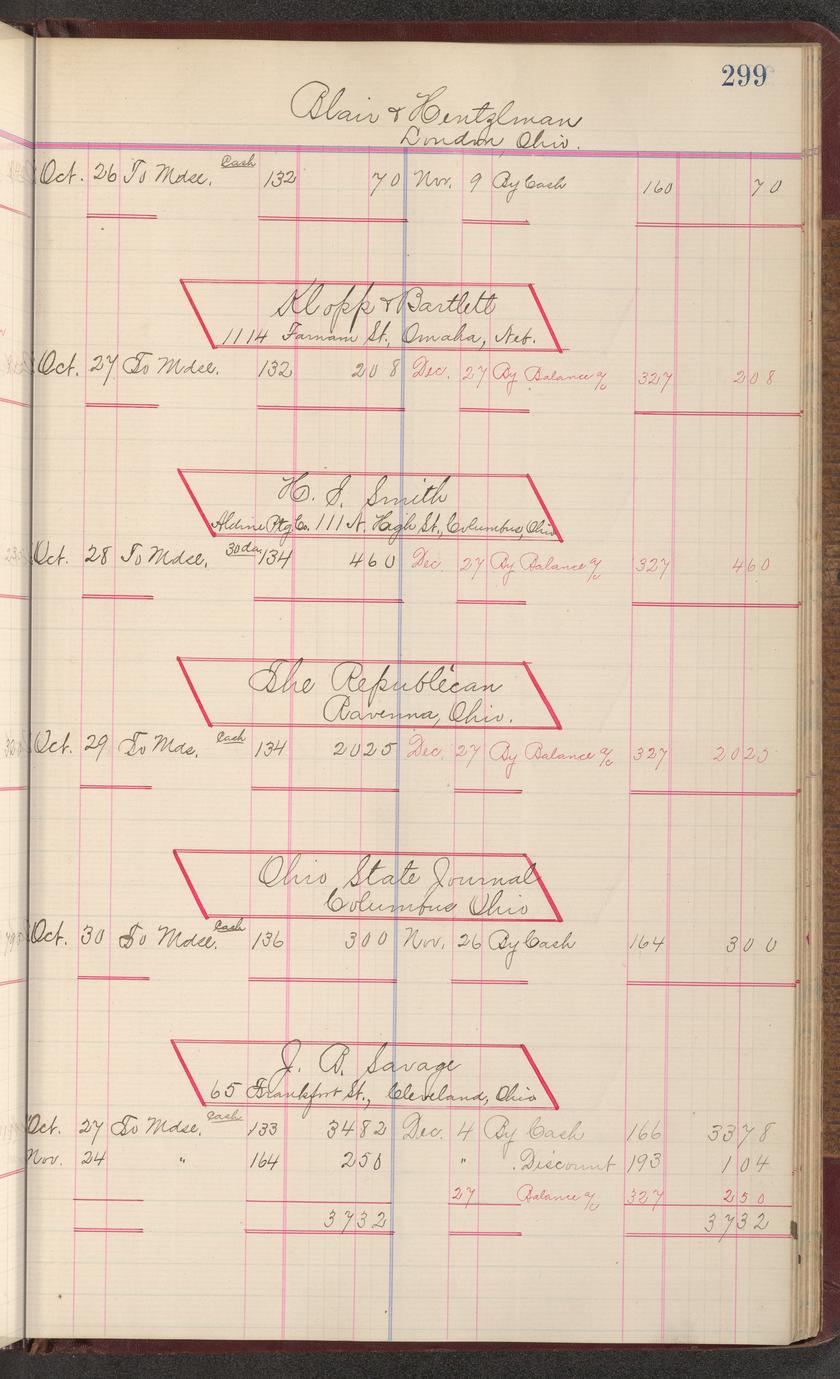 299
Blair & Hentzlman
London, Ohio.
Oct. 26 To Mdse. Cash 132 70 Nov. 9 By Cash 160 70
Klopp & Bartlett
1114 Farnam St., Omaha, Neb.
Oct. 27 To Mdse. 132 208 Dec. 27 By Balance a/c 327 208
H. S. Smith
Aldine Ptg Co. 111 N. High St., Columbus, Ohio
Oct. 28 To Mdse. 30 da. 134 460 Dec. 27 By Balance a/c 327 460
The Republican
Ravenna, Ohio.
Oct. 29 To Mds. Cash 134 2025 Dec. 27 By Balance a/c 327 2025
Ohio State Journal
Columbus Ohio
Oct. 30 To Mdse. Cash 136 300 Nov. 26 By Cash 164 300
J. B. Savage
65 Frankfort St., Cleveland, Ohio
Oct. 27 To Mdse. Cash 133 3482 Dec. 4 By Cash 166 3378
Nov. 24 " 164 250 " Discount 193 104
27 Balance a/c 327 250
3732 3732